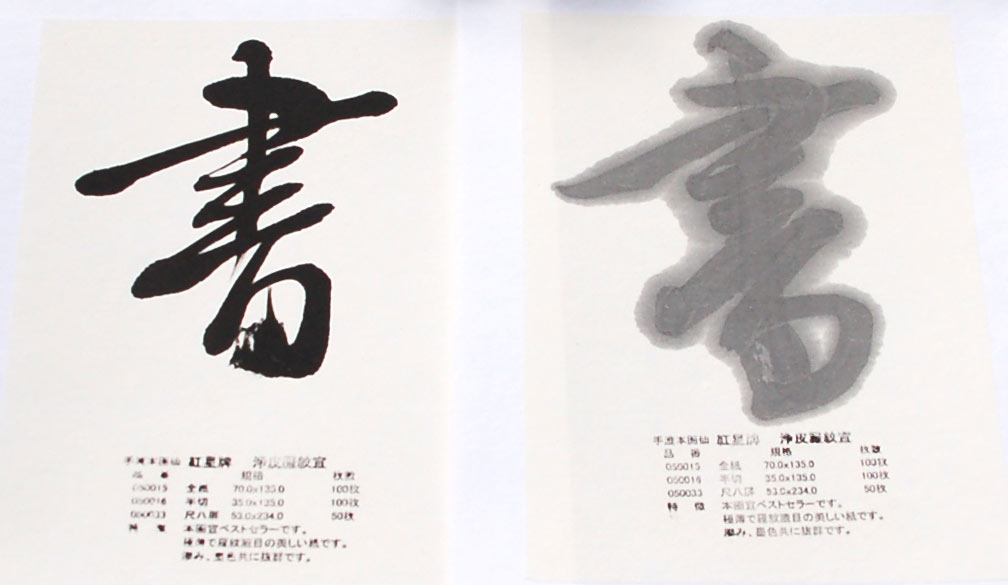 書
手漉本画仙 紅星牌 浄皮羅紋宣
品番 規格 枚数
050015 全紙 70.0x135.0 100枚
050016 半切 35.0x135.0 100枚
050033 尺八屏 53.0x234.0 50枚
特徴 本画宣ベストセラーです。
極薄で羅紋漉目の美しい紙です。
滲み、墨色共に抜群です。
書
手漉本画仙 紅星牌 浄皮羅紋宣
品番 規格 枚数
050015 全紙 70.0x135.0 100枚
050016 半切 35.0x135.0 100枚
050033 尺八屏 53.0x234.0 50枚
特徴 本画宣ベストセラーです。
極薄で羅紋漉目の美しい紙です。
滲み、墨色共に抜群です。